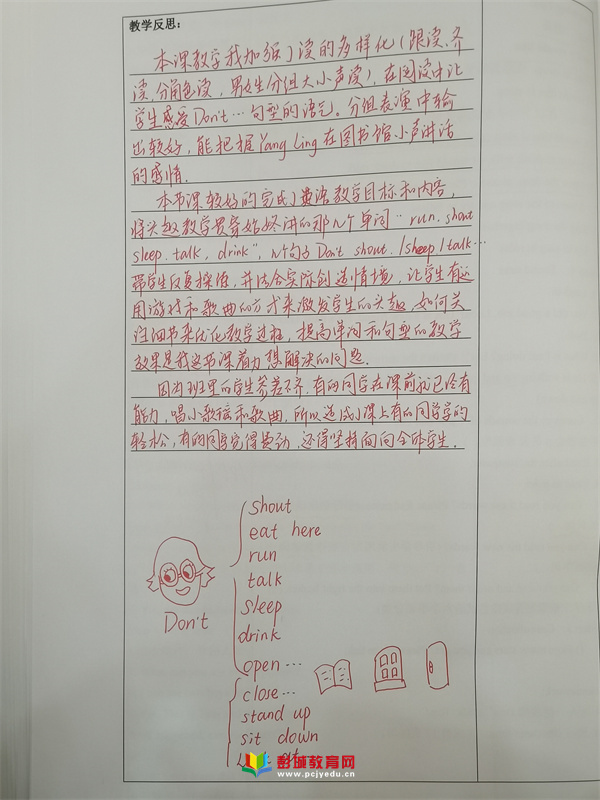 教学反思：
本课教学我加强了读的多样化（跟读、齐
读，分角色读，男女生分组大小声读），在阅读中让
学生感受Don't…句型的语气。分组表演中输
出较好，能把握Yang Ling在图书馆小声讲话
的感情．
本节课较好的完成了英语教学目标和内容，
将兴趣教学贯穿始终讲的那几个单词“run. shout
sleep. talk, drink”, 几个句子Don't shout. /sheep/talk…
带学生反复操练，并结合实际创造情境，让学生有
用游戏和歌曲的方式来激发学生的兴趣，如何关
注细节来优化教学过程，提高单词和句型的教学
效果是我这节课着力想解决的问题．
因为班里的学生参差不齐，有的同学在课前就已经有
能力，唱小歌谣和歌曲，所以造成了课上有的同学学的
轻松，有的同学觉得费劲，还得坚持面向全体学生．
shout
eat here
run
talk
sleep
drink
open…
Don't
close…
stand up
sit down
at
彭城教育网
www.pcjyedu.cn